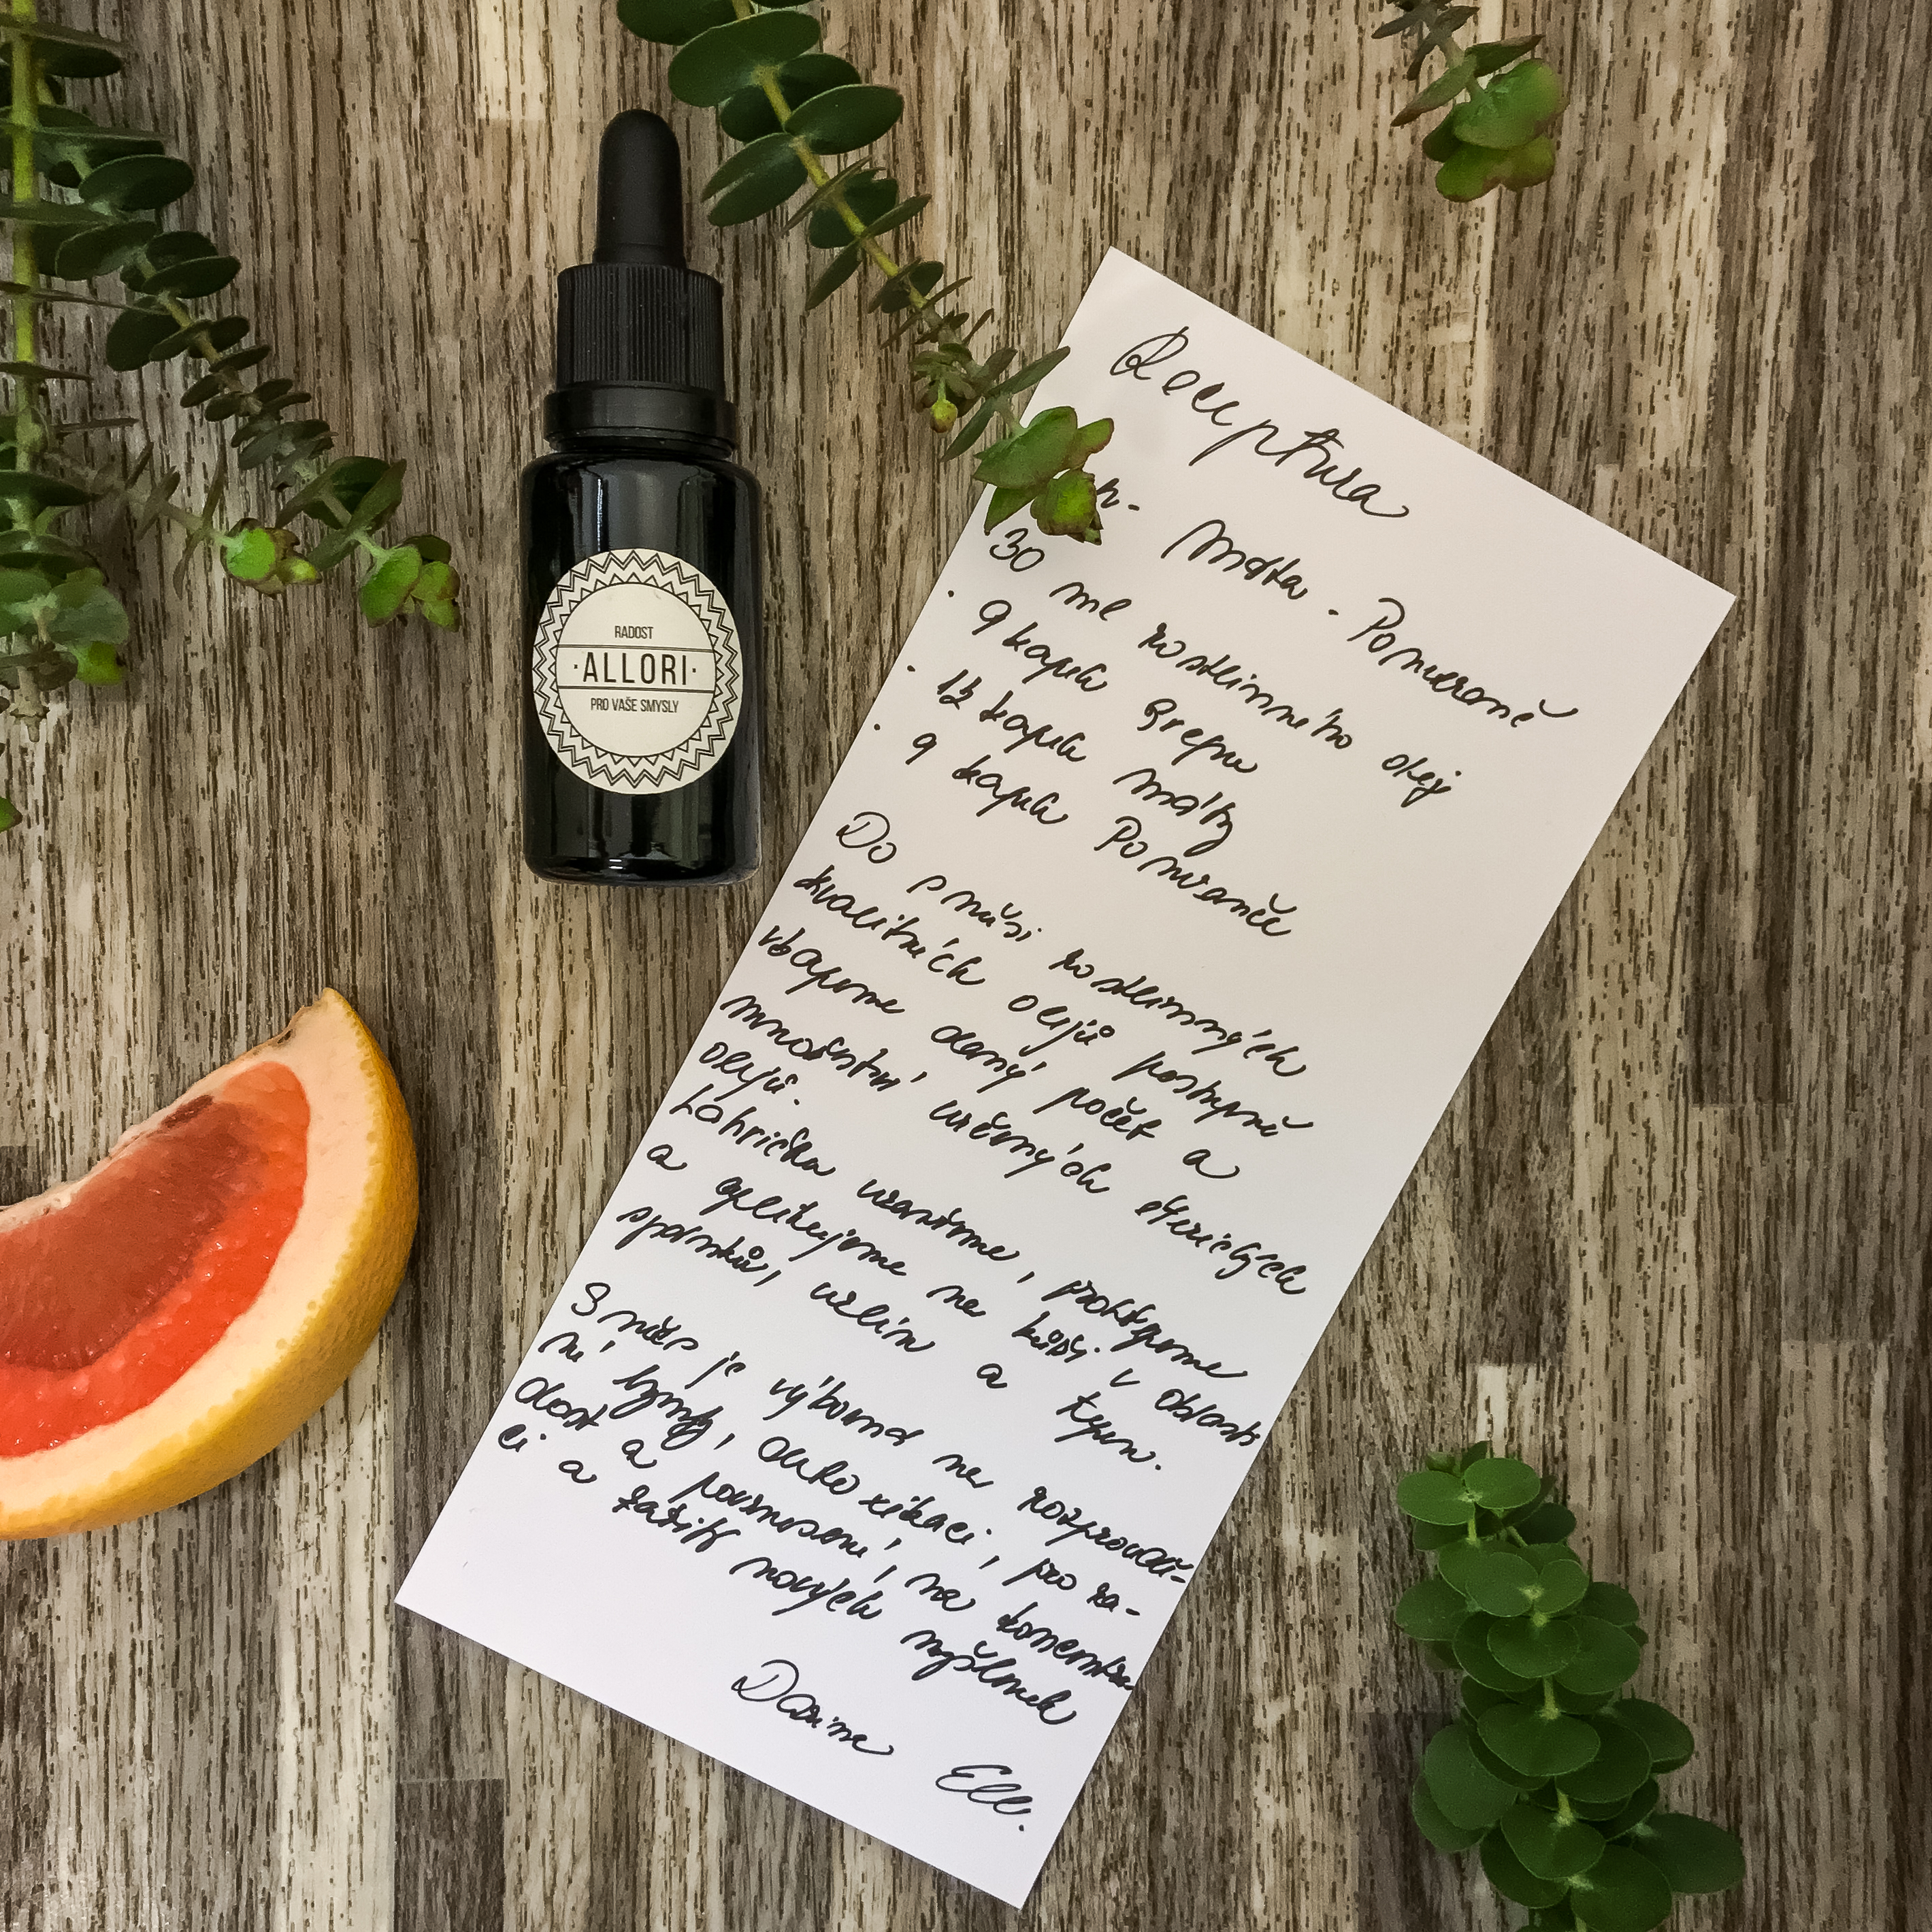 RADOST
·ALLORI·
PRO VAŠE SMYSLY
Receptura
- Máta - Pomeranč
30 ml rostlinného olej
· 9 kapek Grepu
· 12 kapek Máty
· 9 kapek Pomeranče
Do směsi rostlinných
kvalitních olejů postupně
vkapeme daný počet a
množství určených éterických
olejů.
Lahvičku uzavřeme, protřepeme
a aplikujeme na kůži v oblasti
spánků, uzlin a tepen.
Směs je výborná na rozprouď-
ní lymfy, detoxikaci, pro ra-
dost a povznesení, na koncentra-
ci a zažití nových myšlenek
Ell.